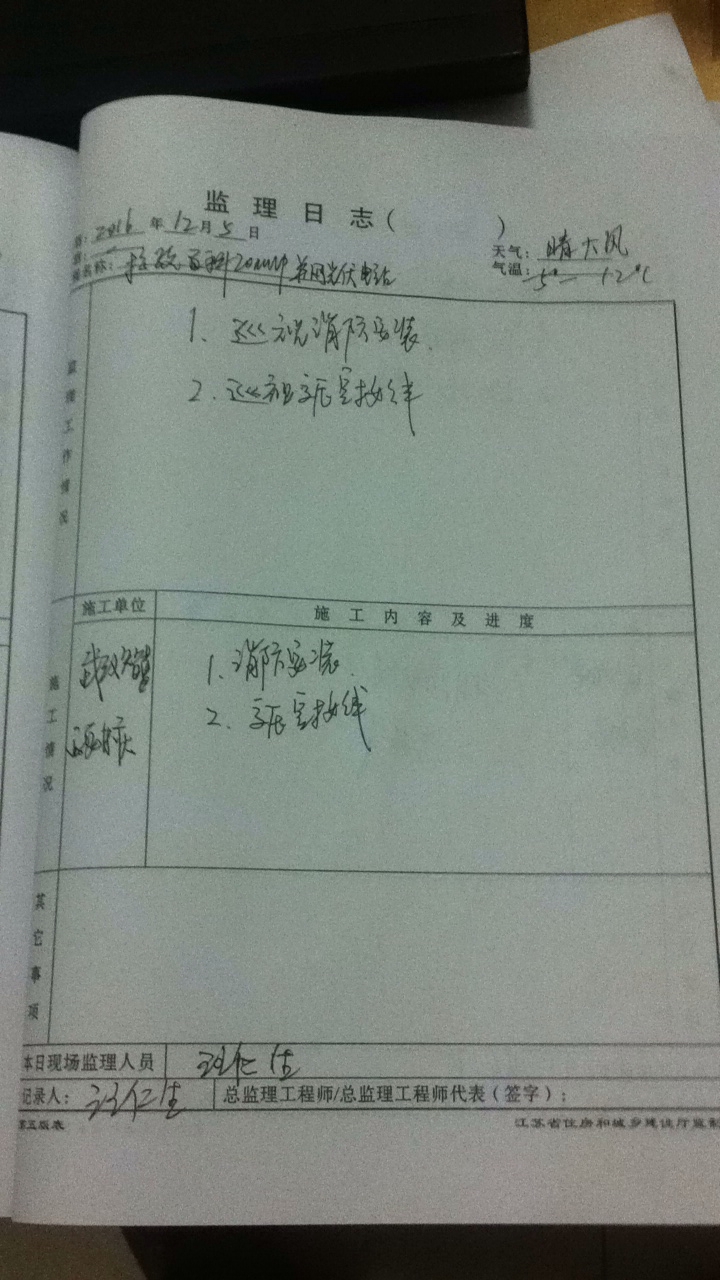 监理日志（ ）
期：2016 年 12 月 5 日
天气：晴大风
气温：5° — 12℃
名称： 20MWP 并网光伏电站
监理工作情况
1、巡视消防安装.
2、巡视 接线
施工单位
施工内容及进度
施工情况
1、消防安装.
2、 接线
其它事项
本日现场监理人员
记录人： 仁生
总监理工程师/总监理工程师代表（签字）：
第五版表
江苏省住房和城乡建设厅监制